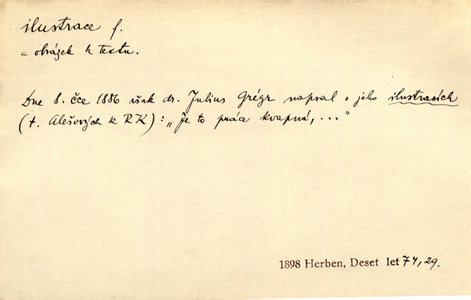 ilustrace f.
= obrázek k textu.
Dne 8. čce 1886 však dr. Julius Grégr napsal o jeho ilustracích
(t. Alešových k RK): „Je to práce kvapná, ..."
1898 Herben, Deset let 74, 29.